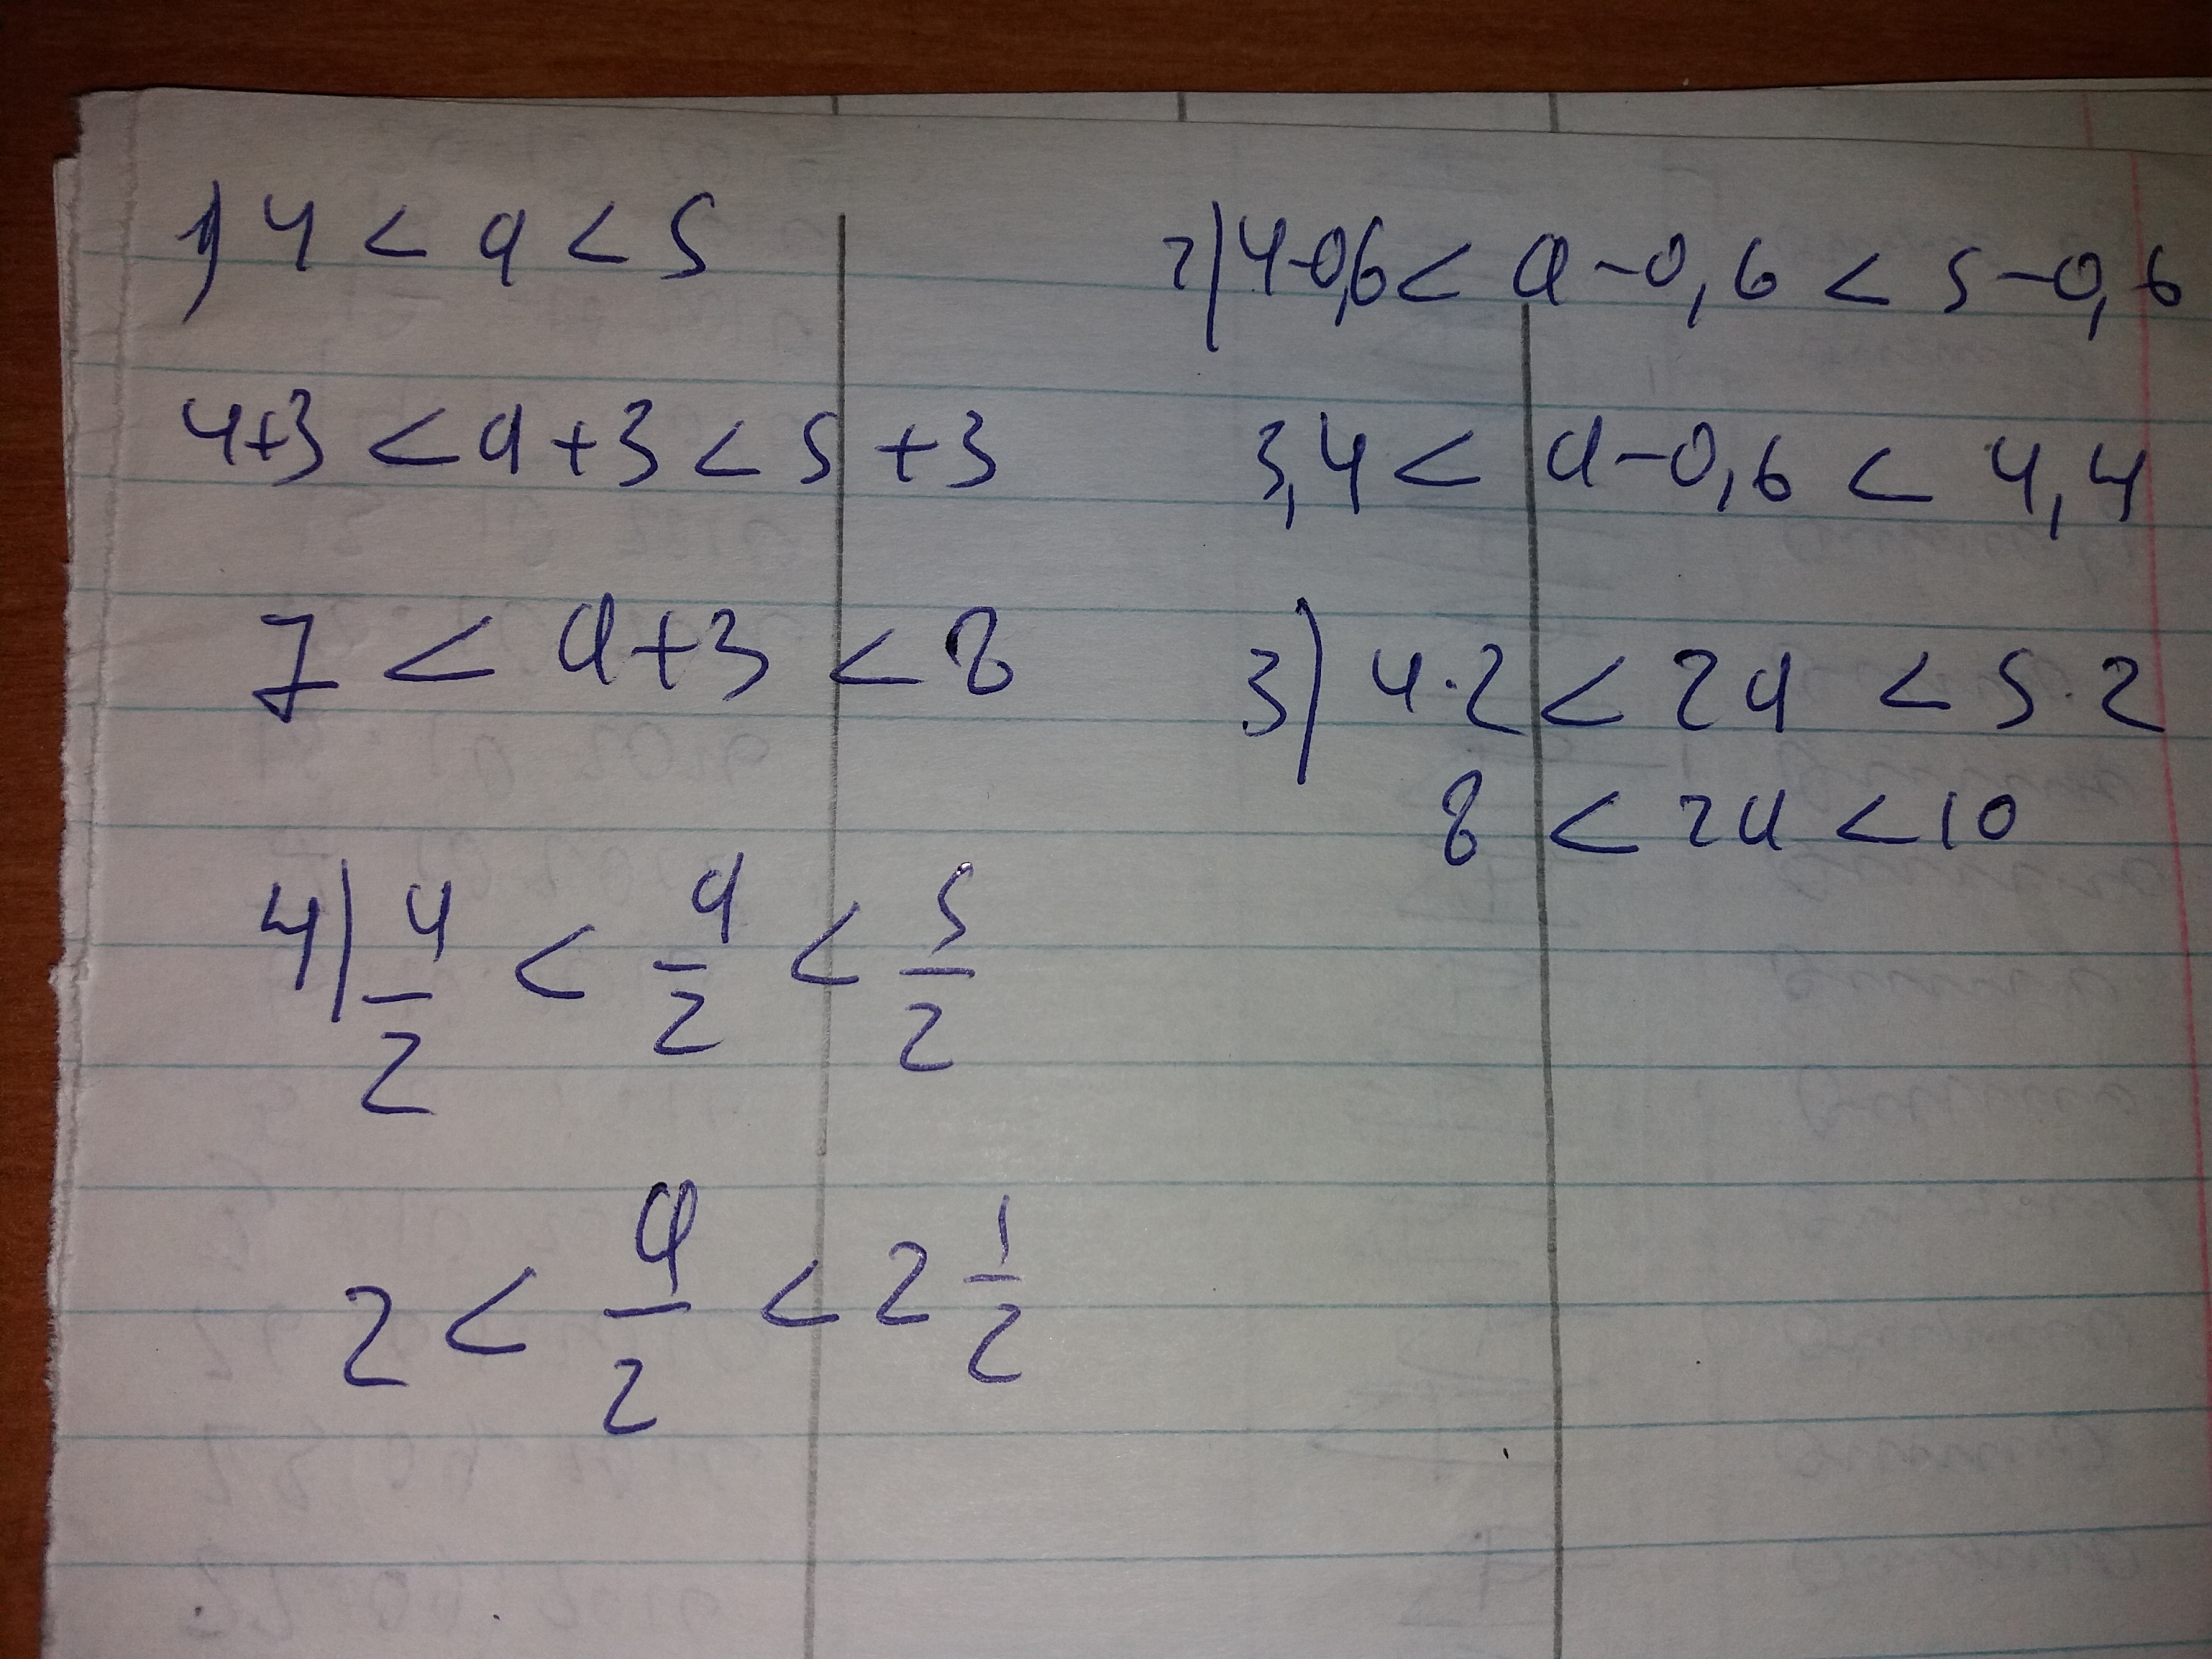 1) 4 < a < 5
4+3 < a+3 < 5+3
7 < a+3 < 8
2) 4-0,6 < a-0,6 < 5-0,6
3,4 < a-0,6 < 4,4
3) 4·2 < 2a < 5·2
8 < 2a < 10
4) 4/2 < a/2 < 5/2
2 < a/2 < 2 1/2